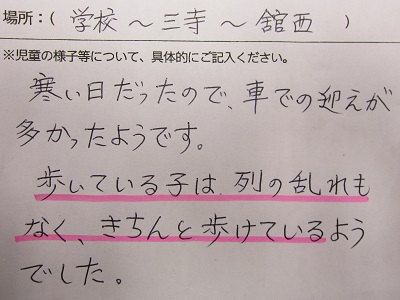 場所：（ 学校 〜 三寺 〜 舘西 ）
※児童の様子等について、具体的にご記入ください。
寒い日だったので、車での迎えが
多かったようです。
歩いている子は、列の乱れも
なく、きちんと歩けているよう
でした。